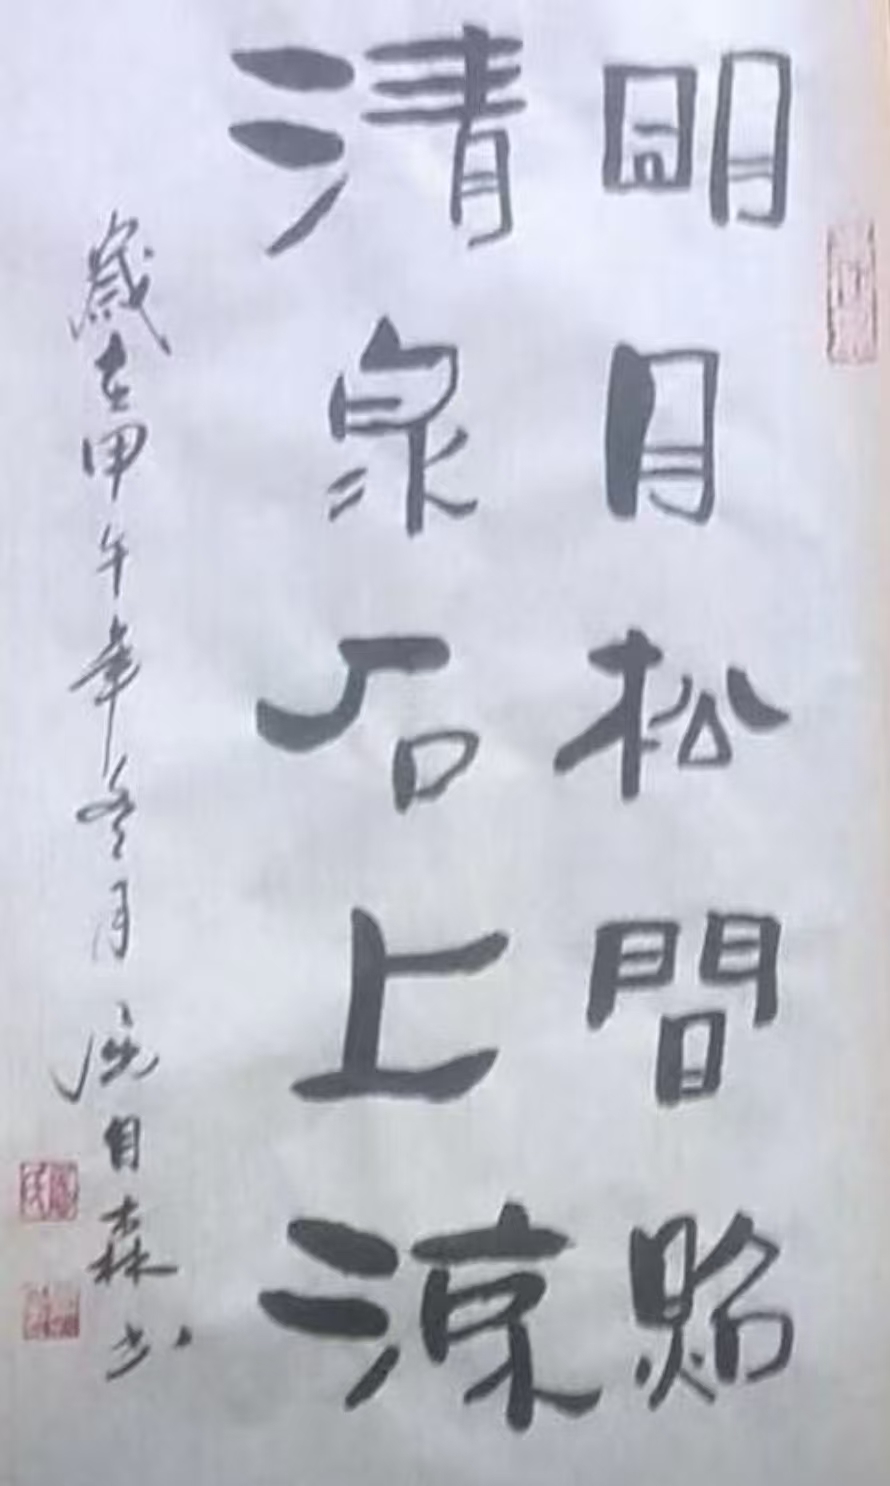 明月松間照
清泉石上涼
歲在甲午年冬月自森书